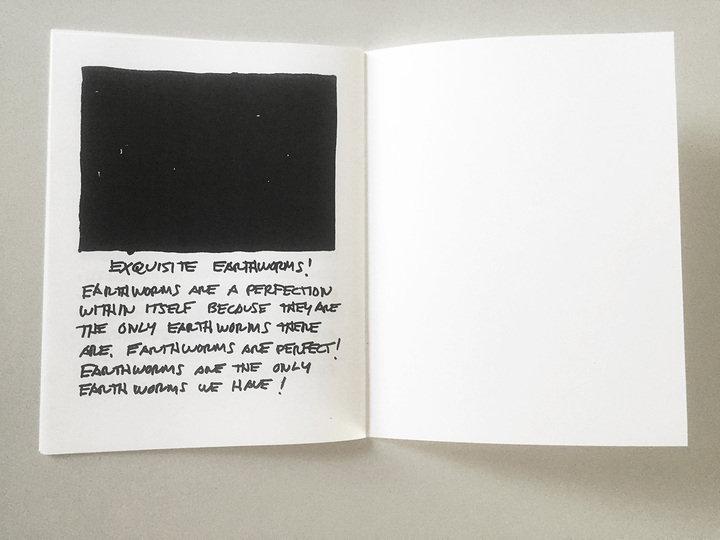 EXQUISITE EARTHWORMS!
EARTHWORMS ARE A PERFECTION
WITHIN ITSELF BECAUSE THEY ARE
THE ONLY EARTHWORMS THERE
ARE. EARTHWORMS ARE PERFECT!
EARTHWORMS ARE THE ONLY
EARTH WORMS WE HAVE!